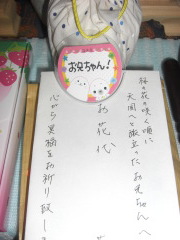 お兄ちゃん!
桜の花の咲く頃に
天国へと旅立ったお兄ちゃんへ
お花代
心から冥福をお祈り致しま